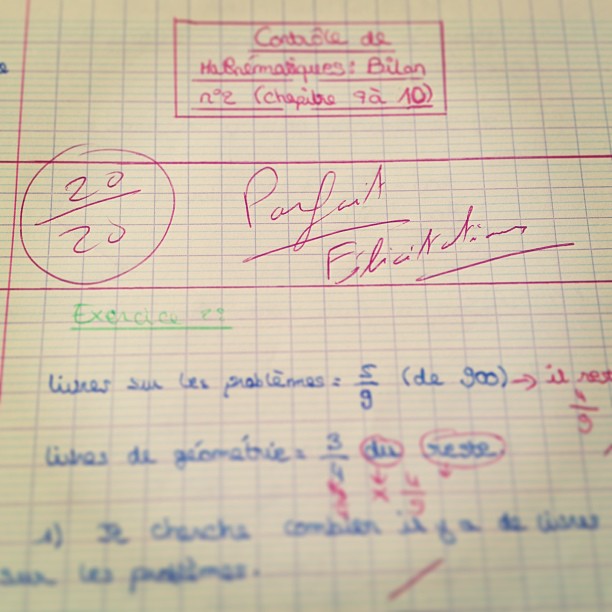 Contrôle de
Mathématiques: Bilan
n°2 (chapitre 9 à 10)
20
20
Parfait
Félicitations
Exercice
livres sur les problèmes = 5/9 (de 900) → il rest
4/9
livres de géométrie = 3/4 du reste.
x 4/9
1) Je cherche combien il y a de livres
sur les problèmes.